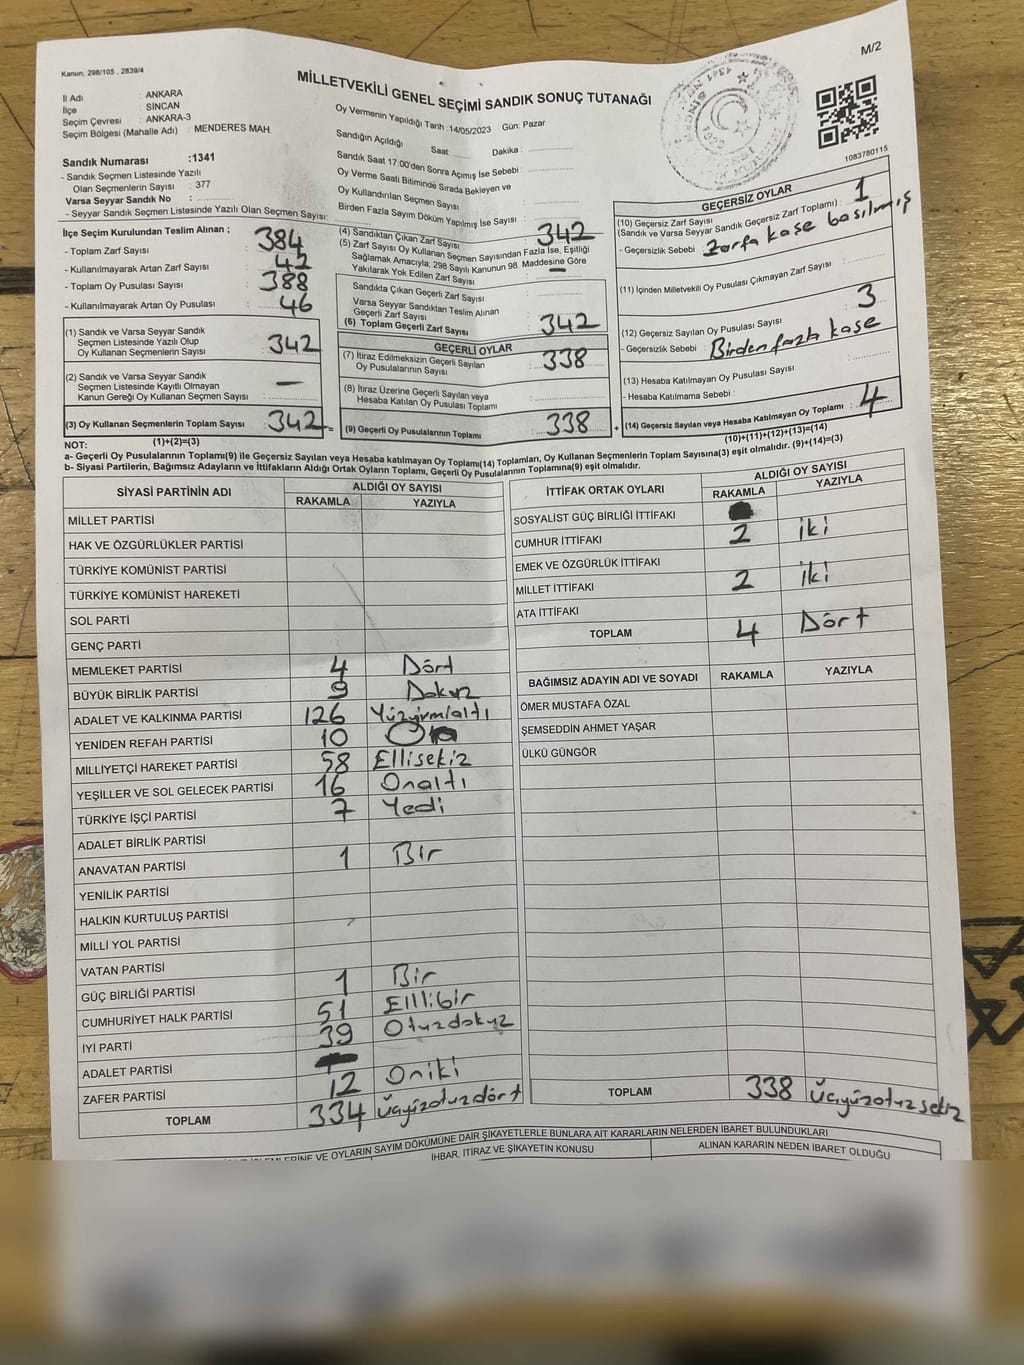 M/2
Kanun; 298/105 , 2839/4
MİLLETVEKİLİ GENEL SEÇİMİ SANDIK SONUÇ TUTANAĞI
İl Adı : ANKARA
İlçe : SİNCAN
Seçim Çevresi : ANKARA-3
Seçim Bölgesi (Mahalle Adı) : MENDERES MAH.
Sandık Numarası :1341
- Sandık Seçmen Listesinde Yazılı
Olan Seçmenlerin Sayısı : 377
Varsa Seyyar Sandık No :
- Seyyar Sandık Seçmen Listesinde Yazılı Olan Seçmen Sayısı:
Oy Vermenin Yapıldığı Tarih :14/05/2023 Gün: Pazar
Sandığın Açıldığı Saat: Dakika :
Sandık Saat 17:00'den Sonra Açımış İse Sebebi :
Oy Verme Saati Bitiminde Sırada Bekleyen ve
Oy Kullandırılan Seçmen Sayısı :
Birden Fazla Sayım Döküm Yapılmış İse Sayısı :
1083780115
İlçe Seçim Kurulundan Teslim Alınan ;
- Toplam Zarf Sayısı : 384
- Kullanılmayarak Artan Zarf Sayısı : 42
- Toplam Oy Pusulası Sayısı : 388
- Kullanılmayarak Artan Oy Pusulası : 46
(1) Sandık ve Varsa Seyyar Sandık
Seçmen Listesinde Yazılı Olup
Oy Kullanan Seçmenlerin Sayısı : 342
(2) Sandık ve Varsa Seyyar Sandık
Seçmen Listesinde Kayıtlı Olmayan
Kanun Gereği Oy Kullanan Seçmen Sayısı : —
(3) Oy Kullanan Seçmenlerin Toplam Sayısı : 342 =
(4) Sandıktan Çıkan Zarf Sayısı : 342
(5) Zarf Sayısı Oy Kullanan Seçmen Sayısından Fazla İse, Eşitliği
Sağlamak Amacıyla, 298 Sayılı Kanunun 98. Maddesine Göre
Yakılarak Yok Edilen Zarf Sayısı : —
Sandıkta Çıkan Geçerli Zarf Sayısı :
Varsa Seyyar Sandıktan Teslim Alınan
Geçerli Zarf Sayısı :
(6) Toplam Geçerli Zarf Sayısı : 342
GEÇERLİ OYLAR
(7) İtiraz Edilmeksizin Geçerli Sayılan
Oy Pusulalarının Sayısı : 338
(8) İtiraz Üzerine Geçerli Sayılan veya
Hesaba Katılan Oy Pusulası Toplamı :
(9) Geçerli Oy Pusulalarının Toplamı : 338 +
GEÇERSİZ OYLAR
(10) Geçersiz Zarf Sayısı
(Sandık ve Varsa Seyyar Sandık Geçersiz Zarf Toplamı) : 1
- Geçersizlik Sebebi : Zarfa kaşe basılmış
(11) İçinden Milletvekili Oy Pusulası Çıkmayan Zarf Sayısı :
(12) Geçersiz Sayılan Oy Pusulası Sayısı : 3
- Geçersizlik Sebebi : Birden fazla kaşe
(13) Hesaba Katılmayan Oy Pusulası Sayısı :
- Hesaba Katılmama Sebebi :
(14) Geçersiz Sayılan veya Hesaba Katılmayan Oy Toplamı : 4
NOT: (1)+(2)=(3) (10)+(11)+(12)+(13)=(14)
a- Geçerli Oy Pusulalarının Toplamı(9) ile Geçersiz Sayılan veya Hesaba katılmayan Oy Toplamı(14) Toplamları, Oy Kullanan Seçmenlerin Toplam Sayısına(3) eşit olmalıdır. (9)+(14)=(3)
b- Siyasi Partilerin, Bağımsız Adayların ve İttifakların Aldığı Ortak Oyların Toplamı, Geçerli Oy Pusulalarının Toplamına(9) eşit olmalıdır.
SİYASİ PARTİNİN ADI ALDIĞI OY SAYISI
RAKAMLA YAZIYLA
MİLLET PARTİSİ
HAK VE ÖZGÜRLÜKLER PARTİSİ
TÜRKİYE KOMÜNİST PARTİSİ
TÜRKİYE KOMÜNİST HAREKETİ
SOL PARTİ
GENÇ PARTİ
MEMLEKET PARTİSİ 4 Dört
BÜYÜK BİRLİK PARTİSİ 9 Dokuz
ADALET VE KALKINMA PARTİSİ 126 Yüzyirmialtı
YENİDEN REFAH PARTİSİ 10 On
MİLLİYETÇİ HAREKET PARTİSİ 58 Ellisekiz
YEŞİLLER VE SOL GELECEK PARTİSİ 16 Onaltı
TÜRKİYE İŞÇİ PARTİSİ 7 Yedi
ADALET BİRLİK PARTİSİ
ANAVATAN PARTİSİ 1 Bir
YENİLİK PARTİSİ
HALKIN KURTULUŞ PARTİSİ
MİLLİ YOL PARTİSİ
VATAN PARTİSİ
GÜÇ BİRLİĞİ PARTİSİ 1 Bir
CUMHURİYET HALK PARTİSİ 51 Ellibir
İYİ PARTİ 39 Otuzdokuz
ADALET PARTİSİ
ZAFER PARTİSİ 12 Oniki
TOPLAM 334 Üçyüzotuzdört
İTTİFAK ORTAK OYLARI ALDIĞI OY SAYISI
RAKAMLA YAZIYLA
SOSYALİST GÜÇ BİRLİĞİ İTTİFAKI
CUMHUR İTTİFAKI 2 iki
EMEK VE ÖZGÜRLÜK İTTİFAKI
MİLLET İTTİFAKI 2 iki
ATA İTTİFAKI
TOPLAM 4 Dört
BAĞIMSIZ ADAYIN ADI VE SOYADI RAKAMLA YAZIYLA
ÖMER MUSTAFA ÖZAL
ŞEMSEDDİN AHMET YAŞAR
ÜLKÜ GÜNGÖR
TOPLAM 338 Üçyüzotuzsekiz
VE OYLARIN SAYIM DÖKÜMÜNE DAİR ŞİKAYETLERLE BUNLARA AİT KARARLARIN NELERDEN İBARET BULUNDUKLARI
İHBAR, İTİRAZ VE ŞİKAYETİN KONUSU ALINAN KARARIN NEDEN İBARET OLDUĞU